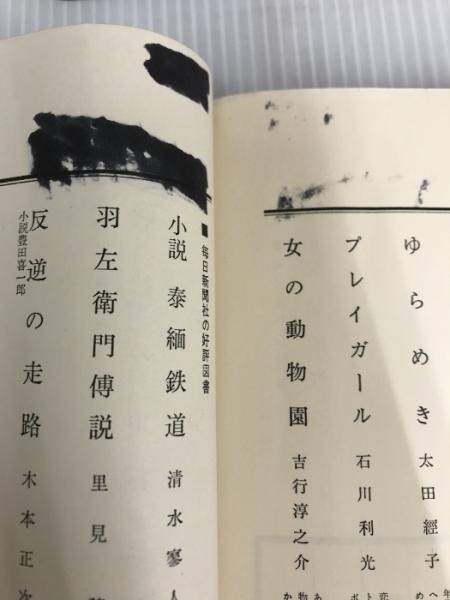 ゆらめき 太田經子
プレイガール 石川利光
女の動物園 吉行淳之介
■毎日新聞社の好評図書
小説 泰緬鉄道 清水寥人
羽左衛門傳説 里見
反逆の走路 木本正次
小説豊田喜一郎